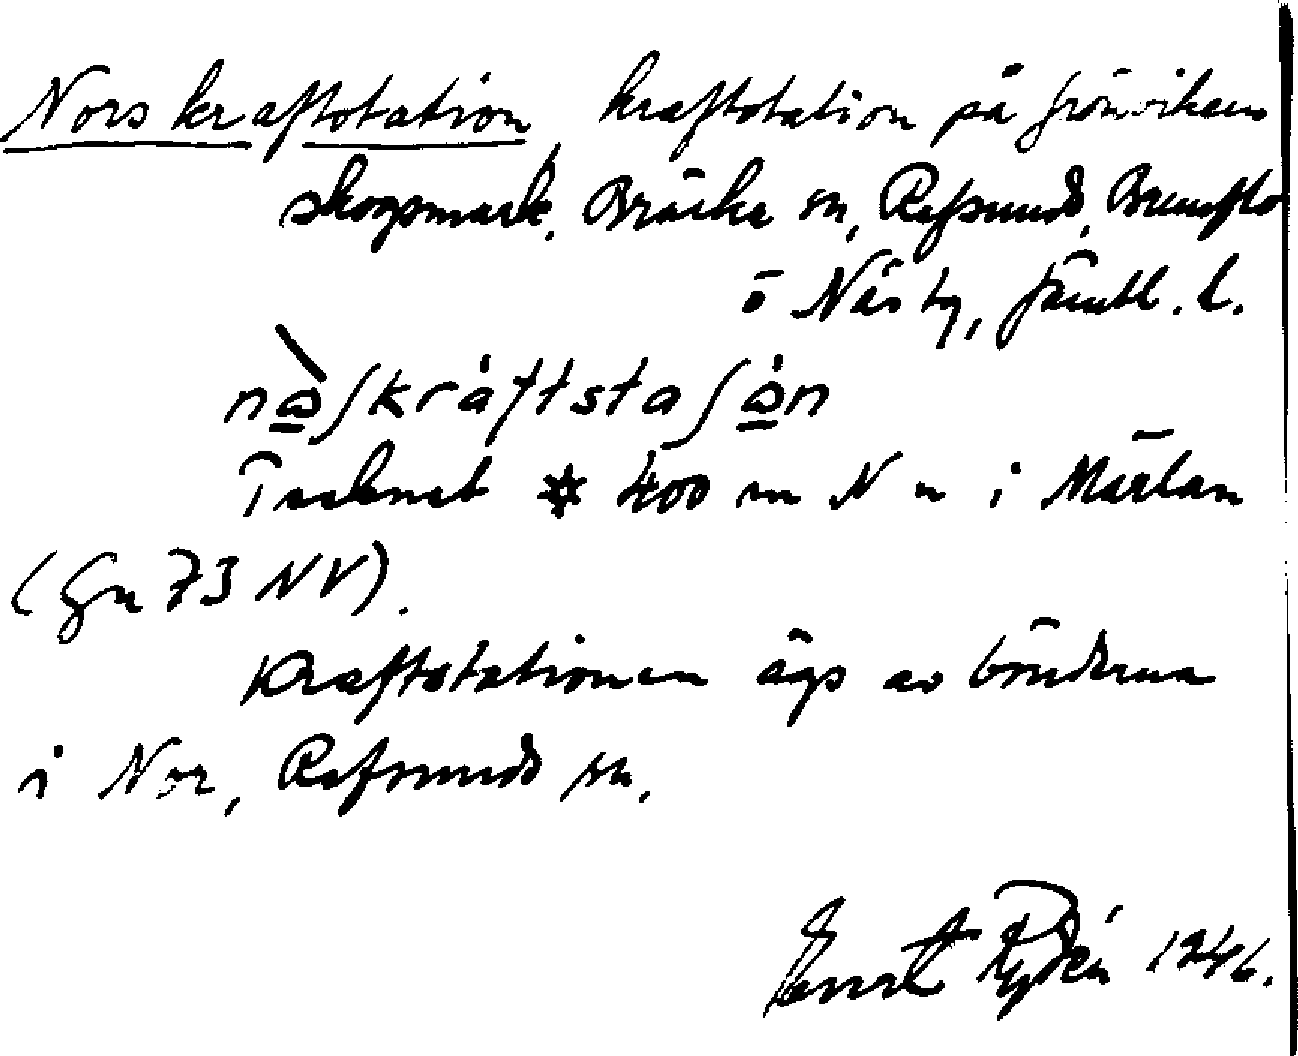 Nors kraftstation, kraftstation på Grönvikens
skogsmark, Bräcke sn, Refsund, Brunflo
o Näs tg, Jämtl. l.
nꜵ̀ʃkráftstaʃɷ́n
Tecknet ☼ 400 m N n i Märlan
(Gn 73 NV).
Kraftstationen ägs av bönderna
i Nor, Refsunds sn.
Ernst Rydén 1946.